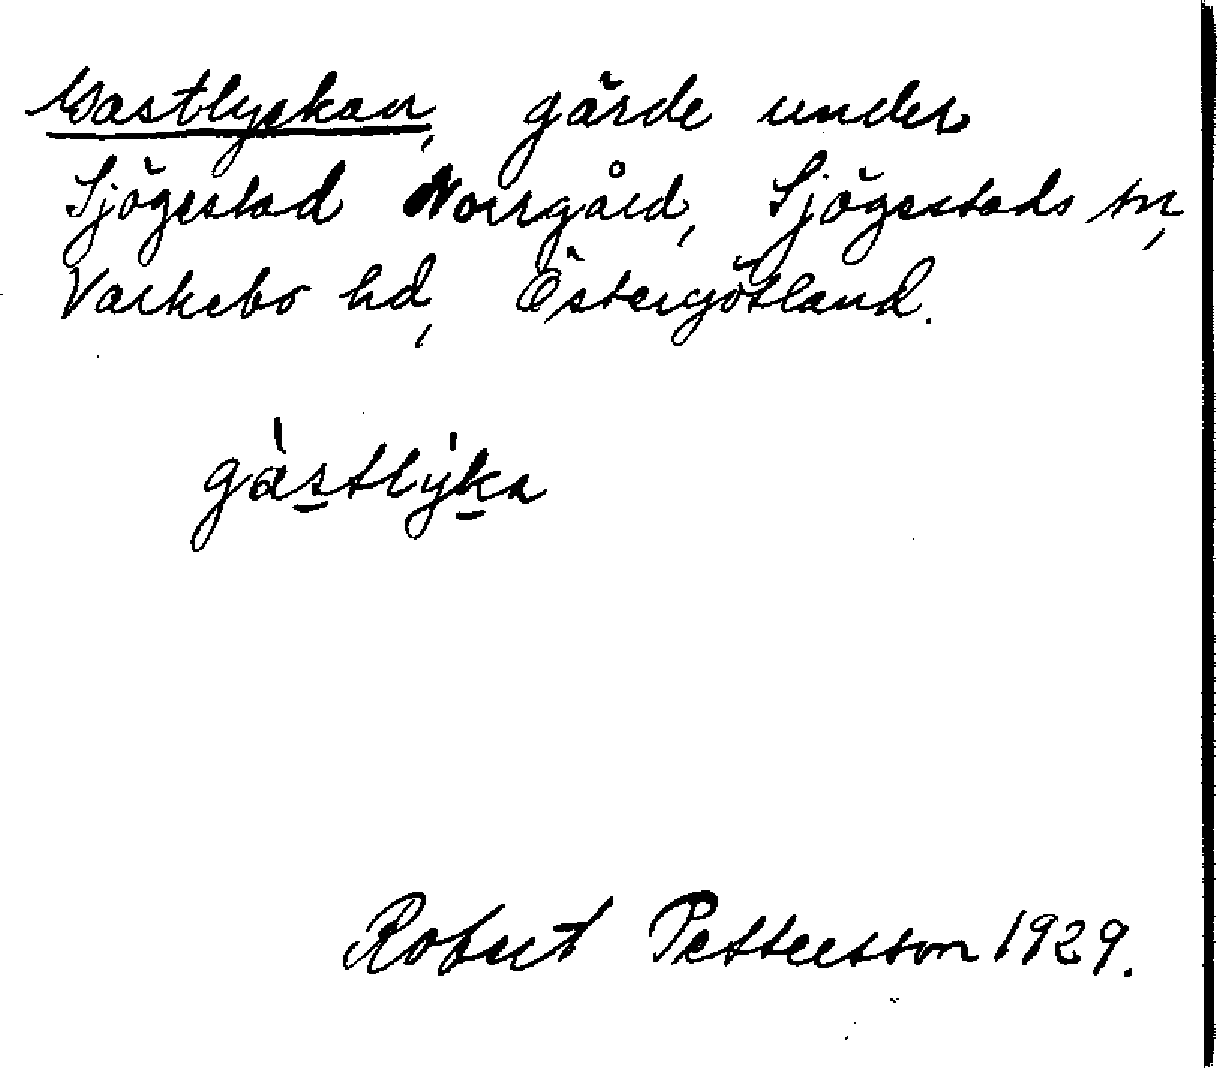 Gastlyckan, gärde under
Sjögestad Norrgård, Sjögestads sn,
Valkebo hd, Östergötland.
gàstlýka
Robert Pettersson 1929.